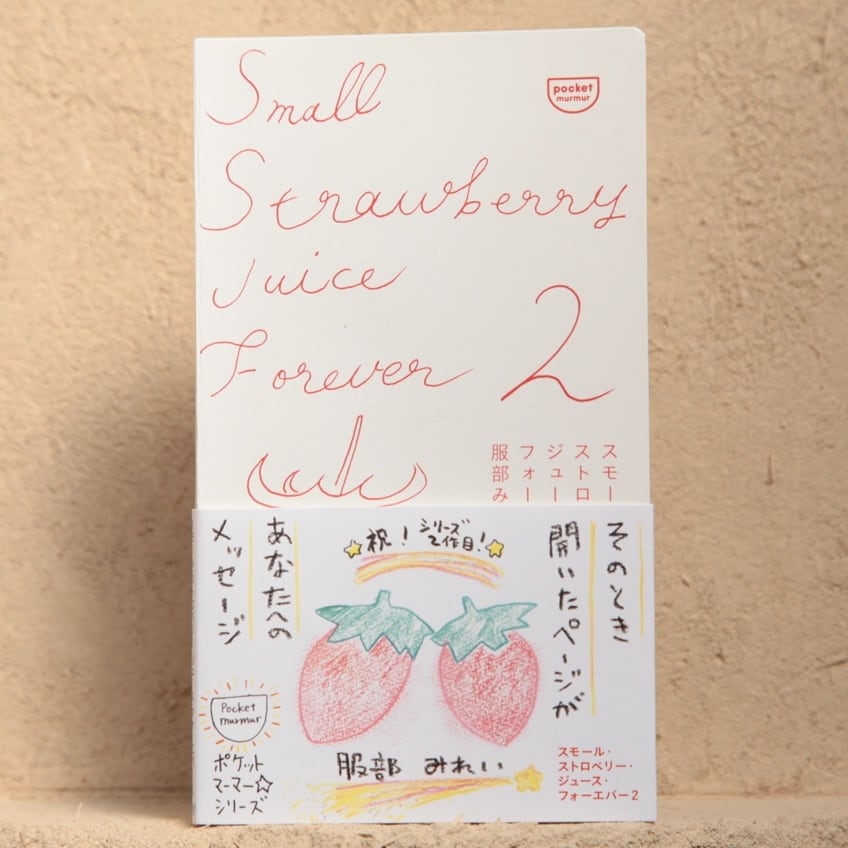 Small
Strawberry
Juice
Forever 2
pocket
murmur
スモー
ストロ
ジュー
フォー
服部み
祝！シリーズ
2作目！
そのとき
開いたページが
あなたへの
メッセージ
Pocket
murmur
ポケット
マーマー☆
シリーズ
服部 みれい
スモール・
ストロベリー・
ジュース・
フォーエバー2